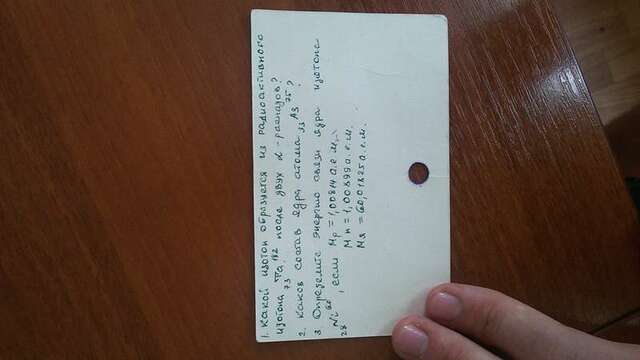 1. Какой изотоп образуется из радиоактивного
изотопа ₇₃Ta¹⁸² после двух α-распадов?
2. Каков состав ядра атома ₃₃As⁷⁵?
3. Определите энергию связи ядра изотопа
₂₈Ni⁶⁰, если Mp = 1,00814 а.е.м.,
Mn = 1,00899 а.е.м.
Mя = 60,01825 а.е.м.